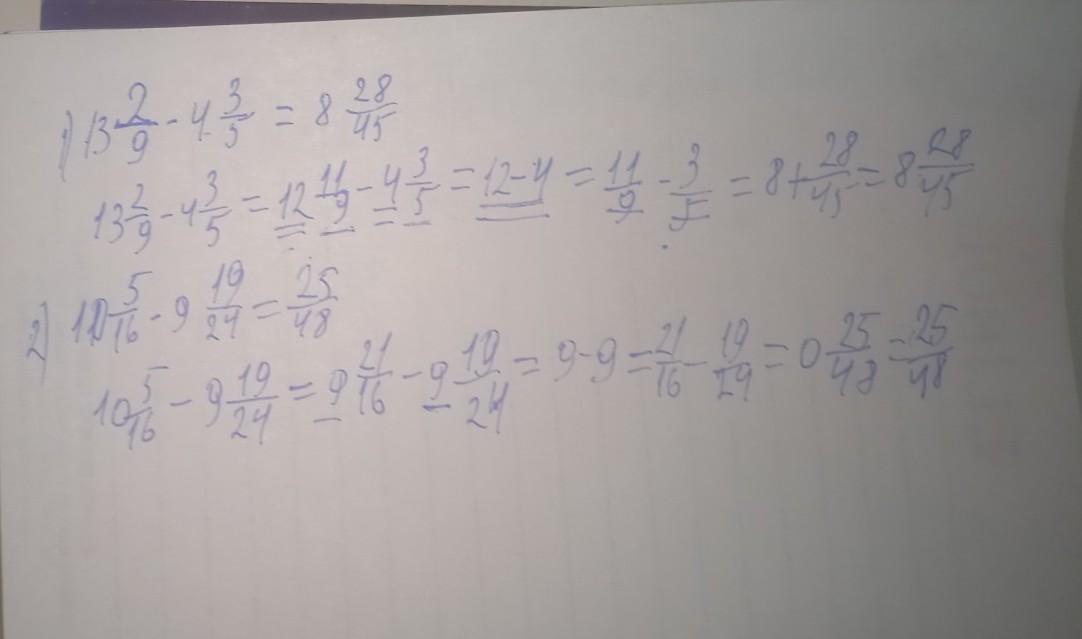 1) 13 2/9 - 4 3/5 = 8 28/45
13 2/9 - 4 3/5 = 12 11/9 - 4 3/5 = 12 - 4 = 11/9 - 3/5 = 8 + 28/45 = 8 28/45
2) 10 5/16 - 9 19/24 = 25/48
10 5/16 - 9 19/24 = 9 21/16 - 9 19/24 = 9 - 9 = 21/16 - 19/24 = 0 25/48 = 25/48